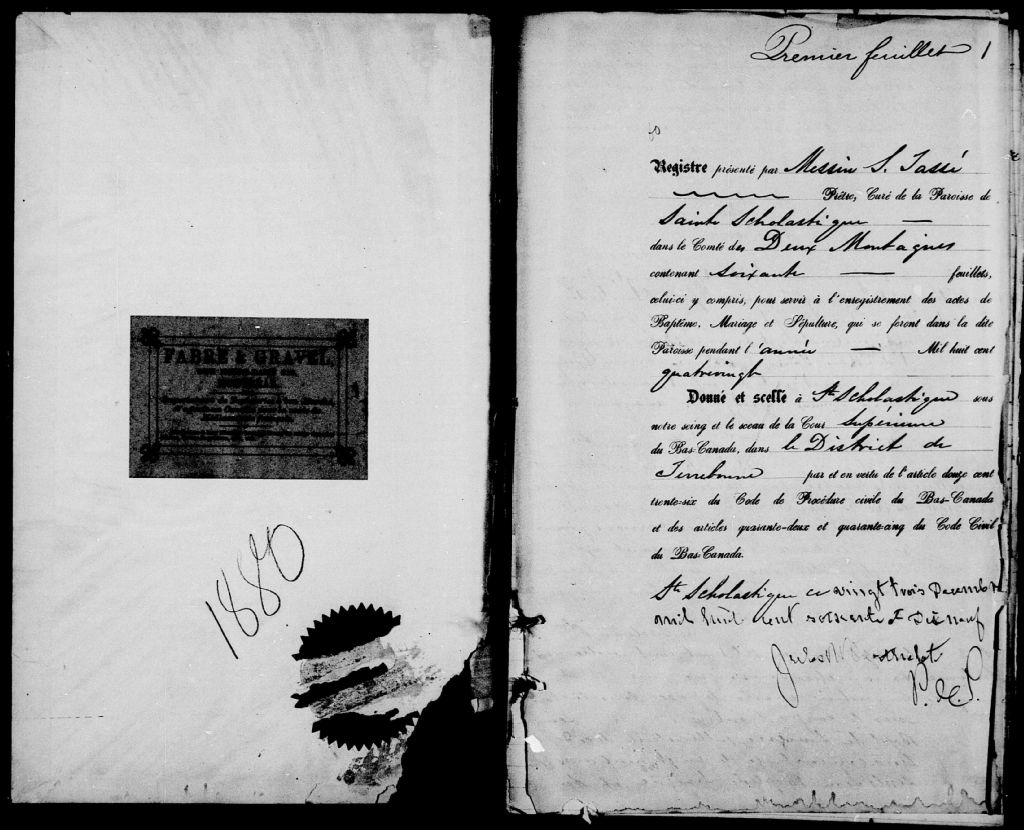 FABRE & GRAVEL,
1880
Premier feuillet 1
Registre présenté par Messire S. Tassé
Prêtre, Curé de la Paroisse de
Sainte Scholastique —
dans le Comté des Deux Montagnes
contenant soixante — feuillets,
celui-ci y compris, pour servir à l'enregistrement des actes de
Baptême, Mariage et Sépulture, qui se feront dans la dite
Paroisse pendant l'année — Mil huit cent
quatrevingt
Donné et scellé à Ste Scholastique sous
notre seing et le sceau de la Cour Supérieure
du Bas-Canada, dans le District de
Terrebonne par et en vertu de l'article douze cent
trente-six du Code de Procédure civile du Bas-Canada
et des articles quarante-deux et quarante-cinq du Code Civil
du Bas-Canada.
Ste Scholastique ce vingt trois Decembre
mil huit cent soixante et Dix neuf
P. C. S.